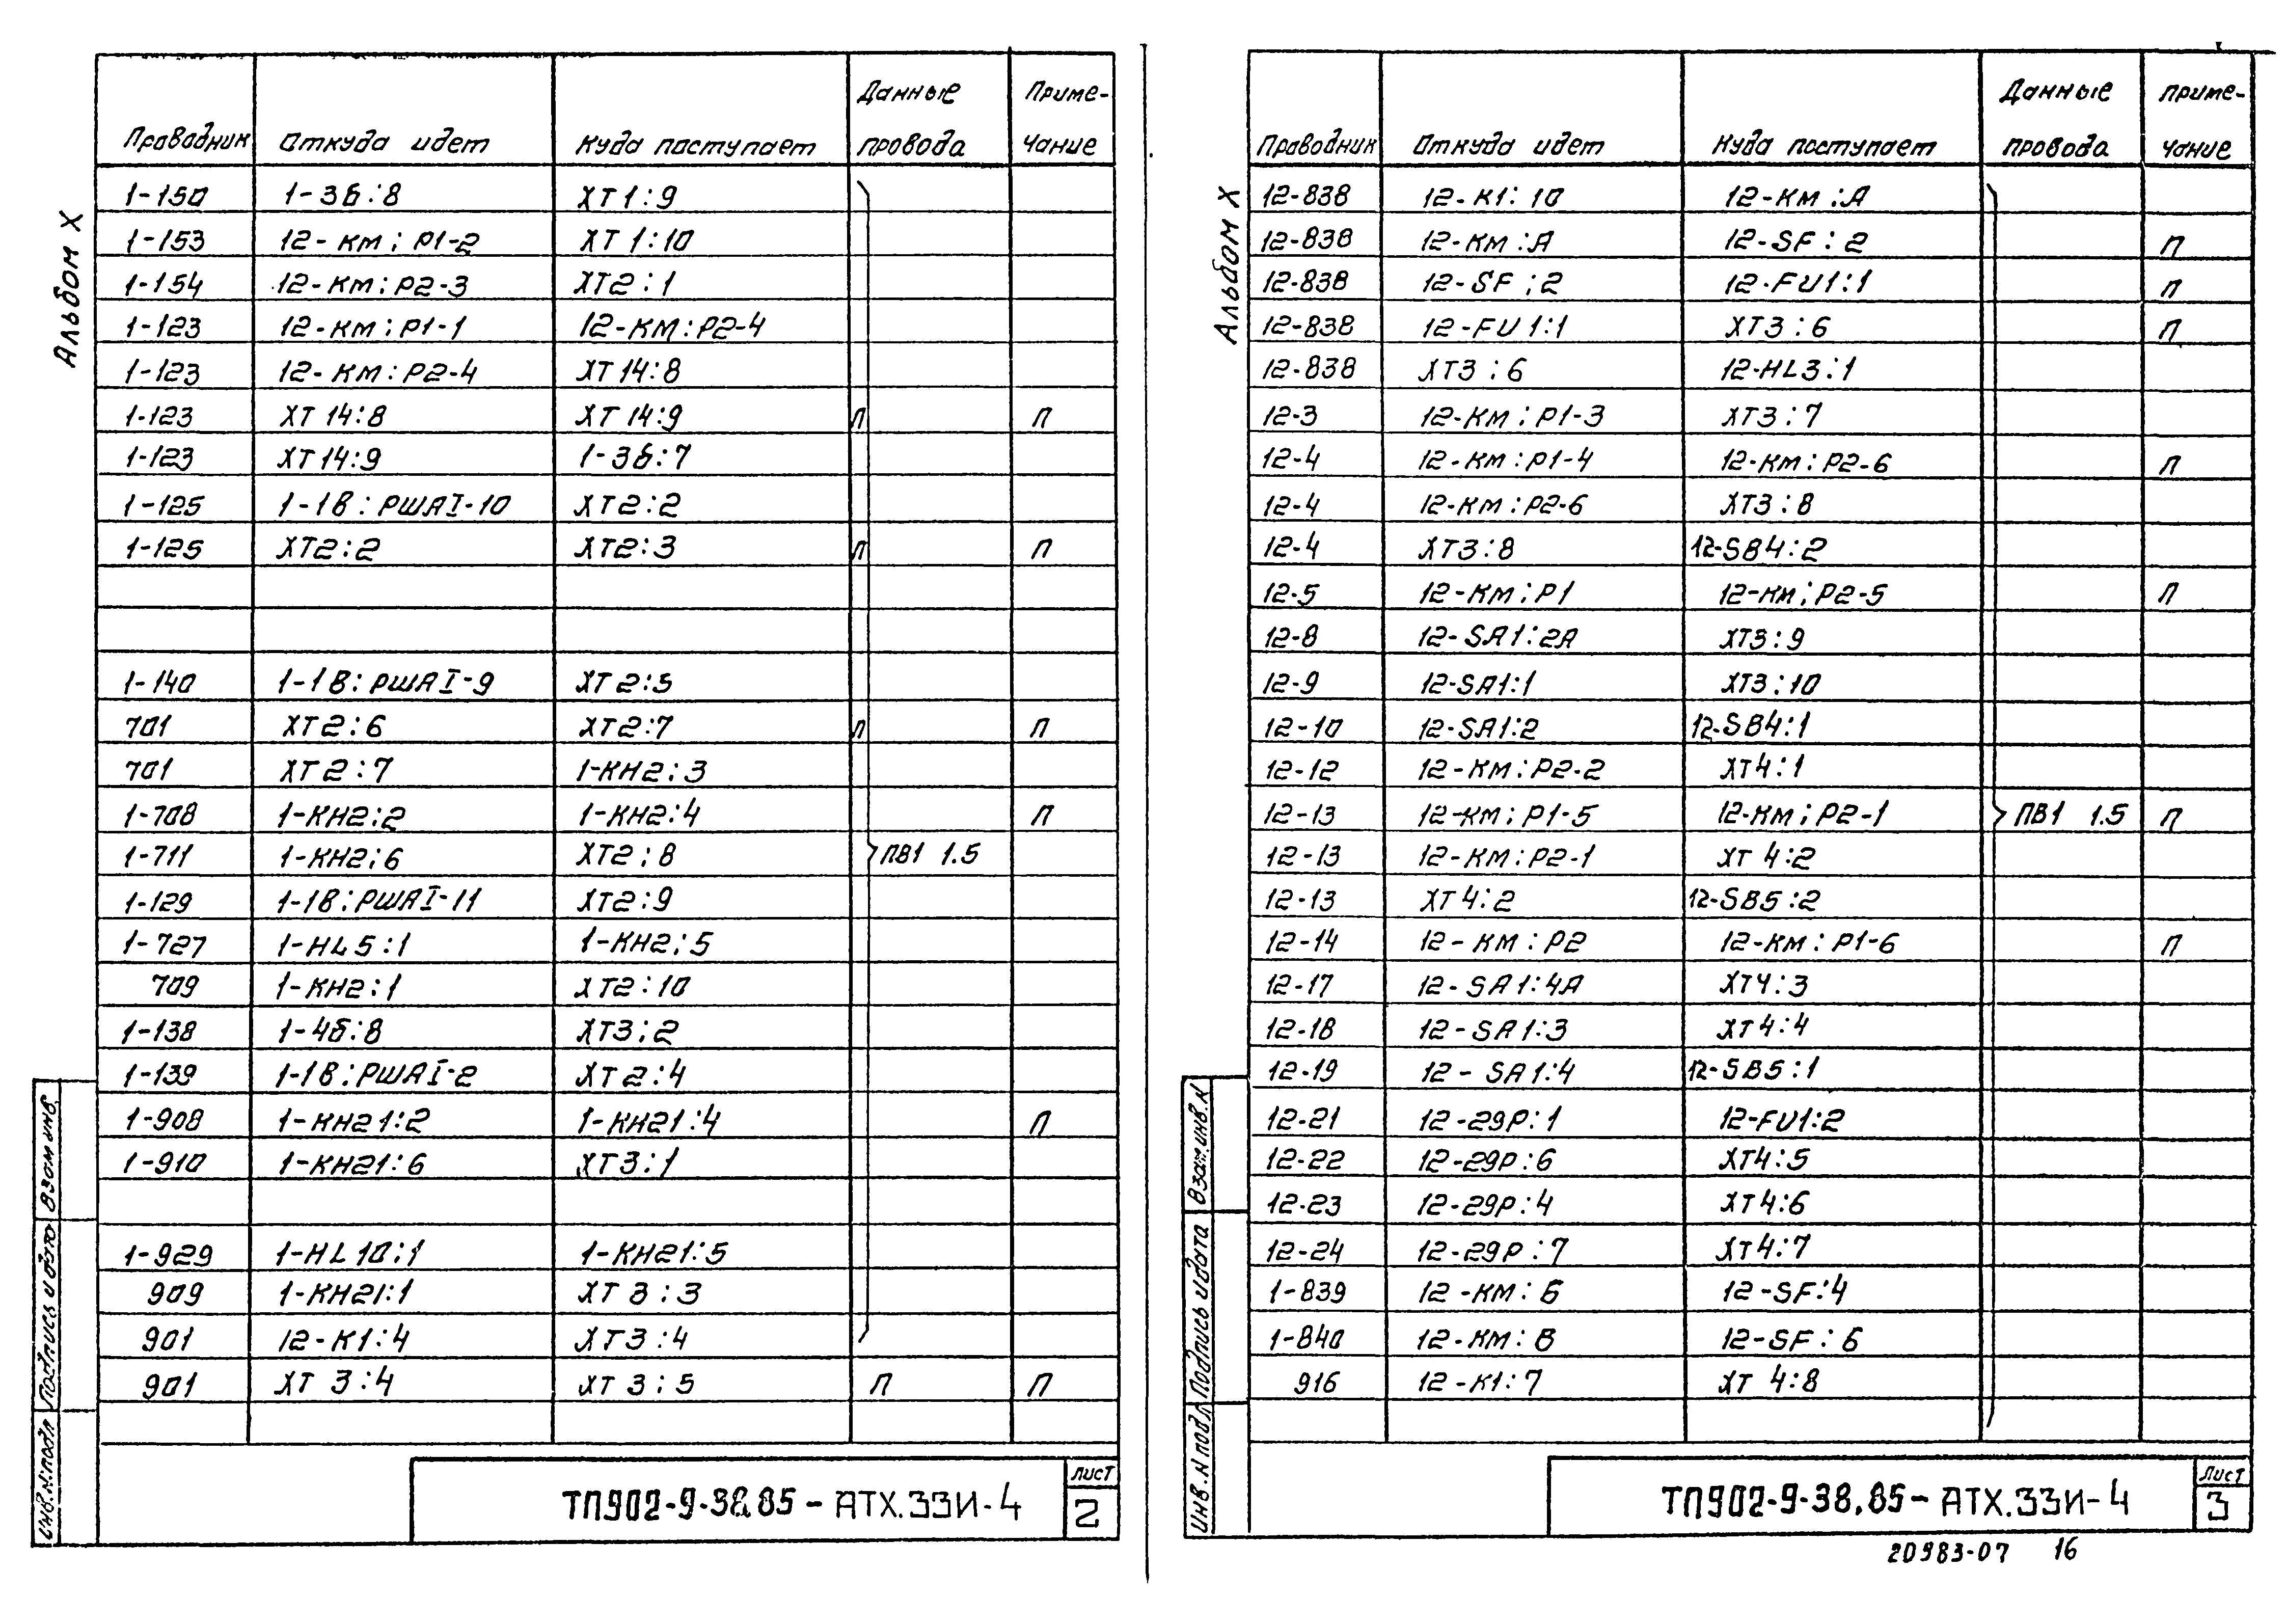 Альбом X
Проводник Откуда идет Куда поступает Данные провода Приме-чание
1-150 1-3б:8 XT1:9
1-153 12-КМ:P1-2 XT1:10
1-154 12-КМ:P2-3 XT2:1
1-123 12-КМ:P1-1 12-КМ:P2-4
1-123 12-КМ:P2-4 XT14:8
1-123 XT14:8 XT14:9 П П
1-123 XT14:9 1-3б:7
1-125 1-1В:РШАI-10 XT2:2
1-125 XT2:2 XT2:3 П П
1-140 1-1В:РШАI-9 XT2:5
701 XT2:6 XT2:7 П П
701 XT2:7 1-КН2:3
1-708 1-КН2:2 1-КН2:4 П
1-711 1-КН2:6 XT2:8 ПВ1 1.5
1-129 1-1В:РШАI-11 XT2:9
1-727 1-HL5:1 1-КН2:5
709 1-КН2:1 XT2:10
1-138 1-4б:8 XT3:2
1-139 1-1В:РШАI-2 XT2:4
1-908 1-КН21:2 1-КН21:4 П
1-910 1-КН21:6 XT3:1
1-929 1-HL10:1 1-КН21:5
909 1-КН21:1 XT3:3
901 12-К1:4 XT3:4
901 XT3:4 XT3:5 П П
Инв.N подл Подпись и дата Взам инв.
ТП902-9-38.85-АТХ.33И-4
Лист
2
Альбом X
Проводник Откуда идет Куда поступает Данные провода Приме-чание
12-838 12-К1:10 12-КМ:А
12-838 12-КМ:А 12-SF:2 П
12-838 12-SF:2 12-FU1:1 П
12-838 12-FU1:1 XT3:6 П
12-838 XT3:6 12-HL3:1
12-3 12-КМ:P1-3 XT3:7
12-4 12-КМ:P1-4 12-КМ:P2-6 П
12-4 12-КМ:P2-6 XT3:8
12-4 XT3:8 12-SB4:2
12-5 12-КМ:P1 12-КМ:P2-5 П
12-8 12-SA1:2A XT3:9
12-9 12-SA1:1 XT3:10
12-10 12-SA1:2 12-SB4:1
12-12 12-КМ:P2-2 XT4:1
12-13 12-КМ:P1-5 12-КМ:P2-1 ПВ1 1.5 П
12-13 12-КМ:P2-1 XT4:2
12-13 XT4:2 12-SB5:2
12-14 12-КМ:P2 12-КМ:P1-6 П
12-17 12-SA1:4A XT4:3
12-18 12-SA1:3 XT4:4
12-19 12-SA1:4 12-SB5:1
12-21 12-29P:1 12-FU1:2
12-22 12-29P:6 XT4:5
12-23 12-29P:4 XT4:6
12-24 12-29P:7 XT4:7
1-839 12-КМ:Б 12-SF:4
1-840 12-КМ:В 12-SF:6
916 12-К1:7 XT4:8
Инв.N подл Подпись и дата Взам.инв.N
ТП902-9-38.85-АТХ.33И-4
Лист
3
20983-07 16